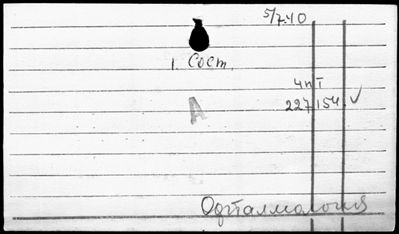 5/7.40
1. Сост.
4 п Т
A
227 154. ✓
Офталмология